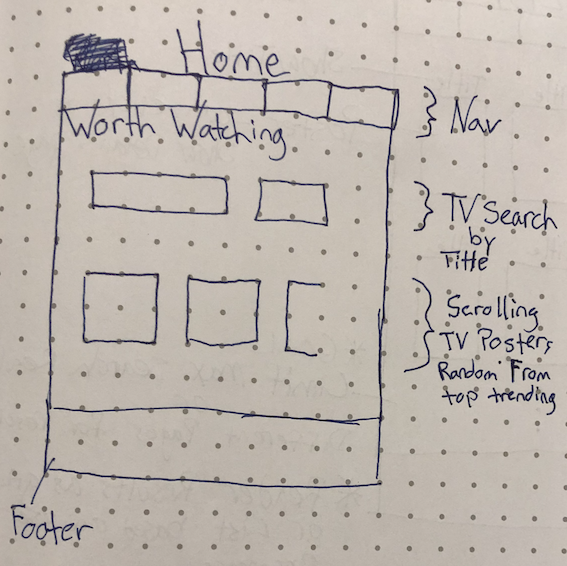 Home
Worth Watching
Nav
TV Search
by
Title
Scrolling
TV Posters
Random From
top trending
Footer